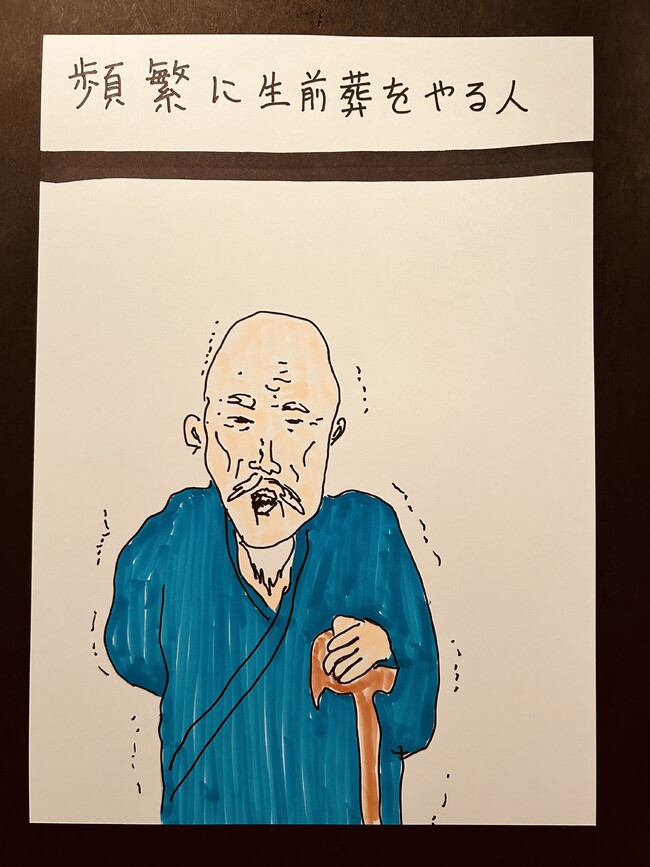 頻繁に生前葬をやる人